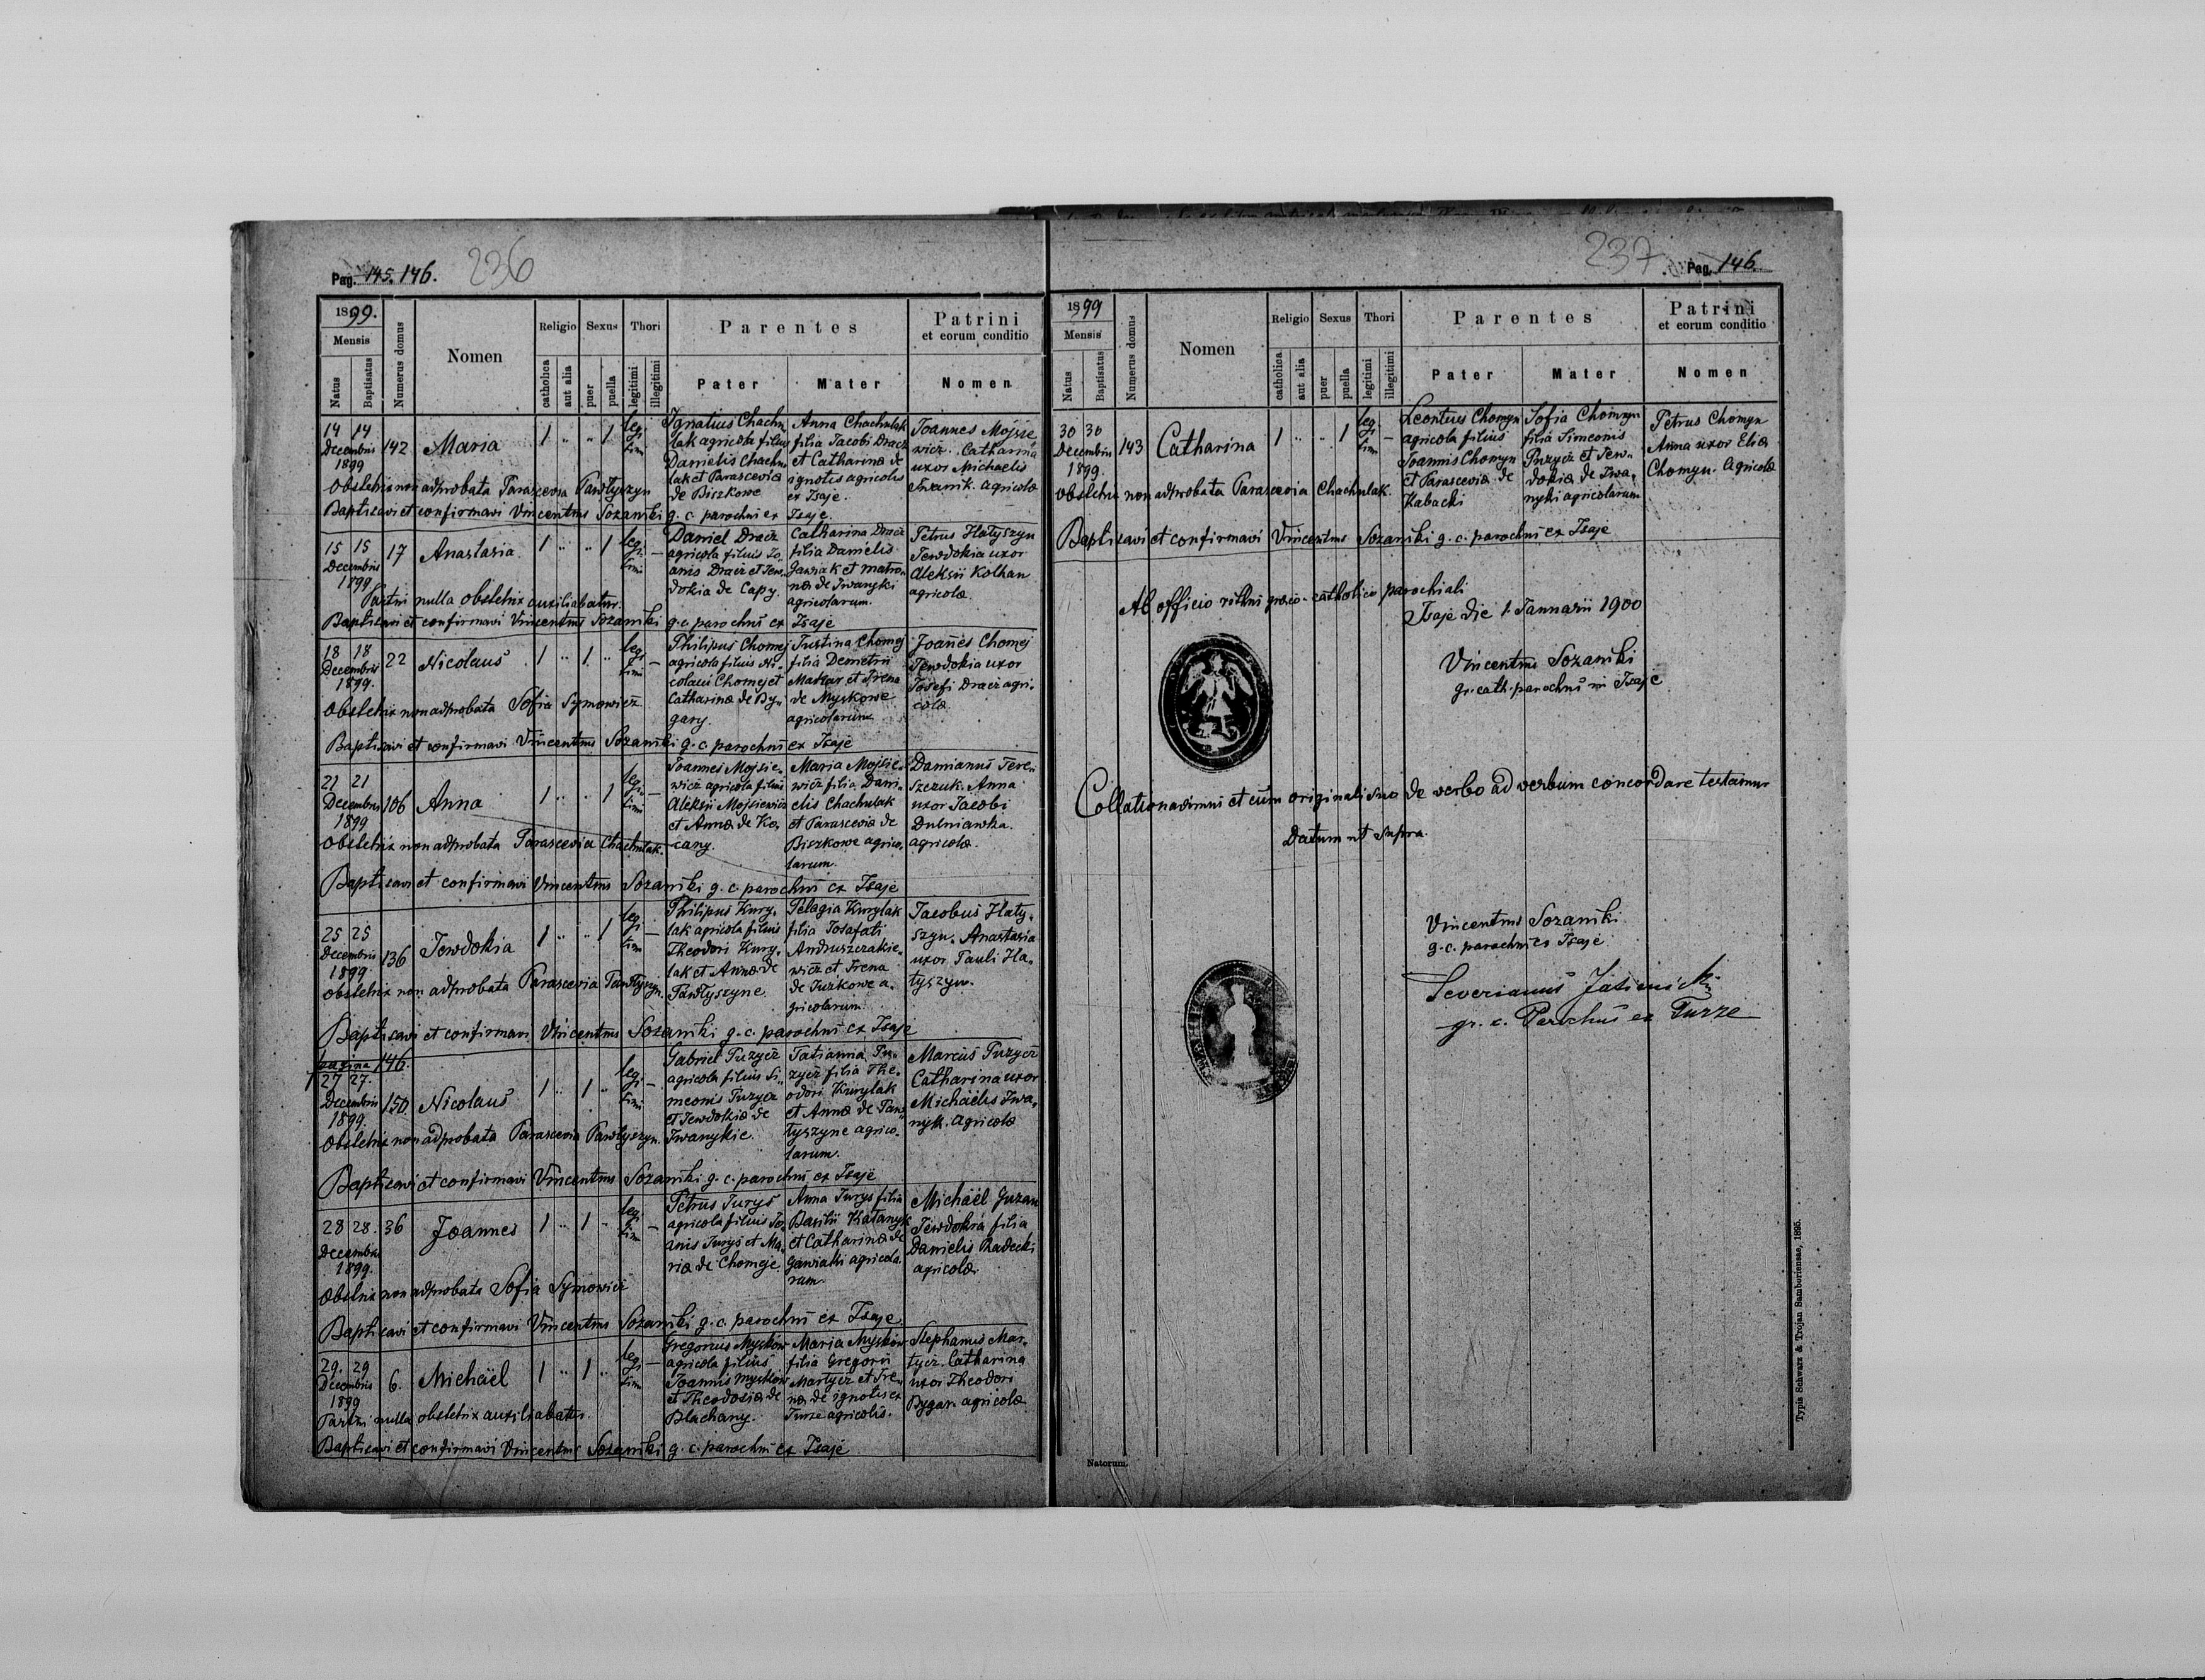 Pag. 145. 146.
236
1899.
Mensis
Natus
Baptisatus
Numerus domus
Nomen
Religio
catholica
aut alia
Sexus
puer
puella
Thori
legitimi
illegitimi
Parentes
Pater
Mater
Patrini
et eorum conditio
Nomen
14 14
Decembris
1899
142
Maria
1 .. .. 1
legi
timi
Ignatius Chachu
lak agricola filius
Danielis Chachu
lak et Parascevia
de Biszkowe
Anna Chachulak
filia Jacobi Dracz
et Catharina de
ignotis agricolis
ex Isaje.
Joannes Mojsie
wicz. Catharina
uxor Michaelis
agricolæ
Obstetrix non adprobata Parascevia Pawłyszyn
Baptisavi et confirmavi Vincentius Sozański g. c. parochus ex Isaje.
15 15
Decembris
1899
17
Anastasia
1 .. .. 1
legi
timi
—
Daniel Dracz
agricola filius Jo
anis Dracz et Jew
dokia de Capy.
Catharina Dracz
filia Danielis
Gawiak et matro
næ de Iwanyki
agricolarum.
Petrus Hłatyszyn
Jewdokia uxor
Aleksii Kolhan
agricolæ
Partui nulla obstetrix auxiliabatur.
Baptisavi et confirmavi Vincentius Sozański g. c. parochus ex Isaje
18 18
Decembris
1899.
22
Nicolaus
1 .. 1 ..
legi
timi
—
Philipus Chomej
agricola filius Ni
colaii Chomej et
Catharinæ de By
gary.
Justina Chomej
filia Demetrii
et Irena
de Myskowe
agricolarum
Joanes Chomej
Jewdokia uxor
Josefi Dracz agri
colæ
Obstetrix non adprobata Sofia Symowicz
Baptisavi et confirmavi Vincentius Sozański g. c. parochus ex Isaje
21 21
Decembris
1899
106
Anna
1 .. .. 1
legi
timi
—
Joannes Mojsie
wicz agricola filius
Aleksii Mojsiewicz
et Annæ de Ko
cany.
Maria Mojsie
wicz filia Dani
elis Chachulak
et Parascevia de
Biszkowe agrico
larum.
Damianus Tere
szczuk. Anna
uxor Jacobi
Dulniawka.
agricolæ.
Obstetrix non adprobata Parascevia Chachulak.
Baptisavi et confirmavi Vincentius Sozański g. c. parochus ex Isaje
25 25
Decembris
1899
136
Jewdokia
1 .. .. 1
legi
timi
—
Philipus Kury
lak agricola filius
Theodori Kury
lak et Annæ de
Pawłyszyne.
Pelagia Kurylak
filia Josafati
Andruszczakie
wicz et Irena
de Jużkowe a
gricolarum.
Jacobus Hłaty
szyn. Anastasia
uxor Pauli Hła
tyszyn.
Obstetrix non adprobata Parascevia Pawłyszyn.
Baptisavi et confirmavi Vincentius Sozański g. c. parochus ex Isaje
pagina 146.
27 27.
Decembris
1899.
150
Nicolaus
1 .. 1 ..
legi
timi
—
Gabriel Puzycz
agricola filius Si
meonis Puzycz
et Jewdokiæ de
Iwanykie.
Tatianna Pu
zycz filia The
odori Kurylak
et Annæ de Paw
łyszyne agrico
larum.
Marcus Puzycz
Catharina uxor
Michaëlis Iwa
nyk. agricolæ
Obstetrix non adprobata Parascevia Pawłyszyn.
Baptisavi et confirmavi Vincentius Sozański g. c. parochus ex Isaje
28 28.
Decembris
1899.
36
Joannes
1 .. 1 ..
legi
timi
—
Petrus Jurys
agricola filius Jo
anis Jurys et Ma
riæ de Chomeje
Anna Jurys filia
Basilii Kałanyk
et Catharinæ de
Gawiaki agricola
rum.
Michaël Guzan
Jewdokia filia
Danielis Radecki
agricolæ.
Obstetrix non adprobata Sofia Symowicz
Baptisavi et confirmavi Vincentius Sozański g. c. parochus ex Isaje.
29. 29
Decembris
1899
6.
Michaël
1 .. 1 ..
legi
timi
—
Gregorius Myskow
agricola filius
Joannis Myskow
et Theodosiæ de
Blachany.
Maria Myskow
filia Gregorii
Martycz et Ire
næ de ignotis ex
Turze agricolis.
Stephanus Mar
tycz. Catharina
uxor Theodori
Bygar agricolæ
Partui nulla obstetrix auxiliabatur.
Baptisavi et confirmavi Vincentius Sozański g. c. parochus ex Isaje
237
Pag. 146.
1899
Mensis
Natus
Baptisatus
Numerus domus
Nomen
Religio
catholica
aut alia
Sexus
puer
puella
Thori
legitimi
illegitimi
Parentes
Pater
Mater
Patrini
et eorum conditio
Nomen
30 30
Decembris
1899.
143
Catharina
1 .. .. 1
legi
timi
—
Leontius Chomyn
agricola filius
Joannis Chomyn
et Parascevia de
Kabacki
Sofia Chomyn
filia Simeonis
Puzycz et Jew
dokiæ de Iwa
nyki agricolarum
Petrus Chomyn
Anna uxor Eliæ
Chomyn. Agricolæ
Obstetrix non adprobata Parascevia Chachulak.
Baptisavi et confirmavi Vincentius Sozański g. c. parochus ex Isaje
Ab officio ritus græco-catholico parochiali
Isaje die 1 Januarii 1900
Vincentius Sozański
gr. cath. parochus in Isaje
Collationavimus et cum originali suo de verbo ad verbum concordare testamur
Datum ut supra.
Vincentius Sozański
g. c. parochus ex Isaje
Severianus Jasienicki
gr. c. Parochus ex Turze
Natorum.
Typis Schwarz & Trojan Samboriensae, 1895.